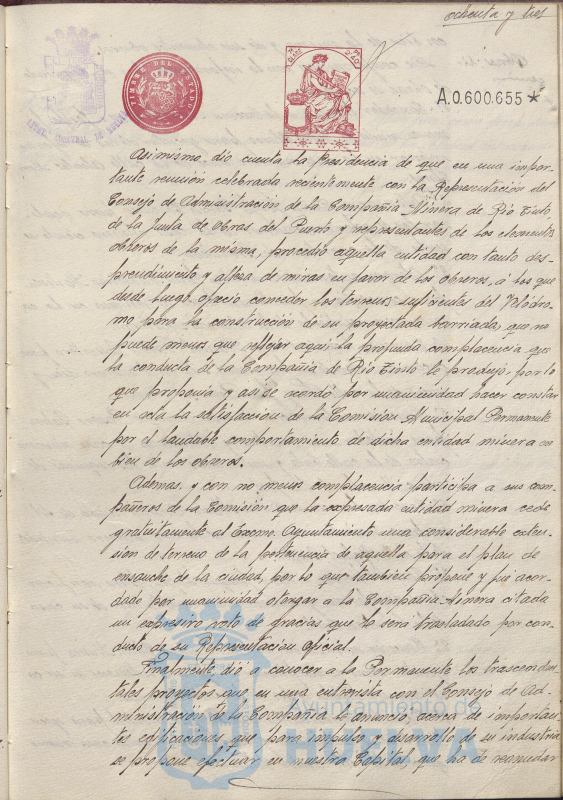 ochenta y tres
TIMBRE DEL ESTADO
A.0.600.655*
Asimismo, dió cuenta la Presidencia de que en una impor-
tante reunión celebrada recientemente con la Representación del
Consejo de Administración de la Compañia Minera de Rio Tinto,
de la Junta de Obras del Puerto y representantes de los elementos
obreros de la misma, procedió aquella entidad con tanto des-
prendimiento y alteza de miras en favor de los obreros, á los que
desde luego ofreció conceder los terrenos suficientes del Velódro-
mo para la construcción de su proyectada barriada, que no
puede menos que reflejar aqui la profunda complacencia que
la conducta de la Compañia de Rio Tinto le produjo, por lo
que proponia y asi se acordó por unanimidad hacer constar
en acta la satisfacción de la Comisión Municipal Permanente
por el laudable comportamiento de dicha entidad minera en
bien de los obreros.
Ademas, y con no menos complacencia participa a sus com-
pañeros de la Comisión que la expresada entidad minera cede
gratuitamente al Excmo. Ayuntamiento una considerable exten-
sión de terreno de la pertenencia de aquella para el plan de
ensanche de la ciudad, por lo que tambien propone y fué acor-
dado por unanimidad otorgar a la Compañia Minera citada
un expresivo voto de gracias que le sera trasladado por con-
ducto de su Representación oficial.
Finalmente dió a conocer a la Permanente los trascenden-
tales proyectos que en una entrevista con el Consejo de Ad-
ministración de la Compañia le anunció, acerca de importan-
tes edificaciones que para impulso y desarrollo de su industria
se propone efectuar en nuestra Capital, que ha de reanudar
Ayuntamiento de
HUELVA